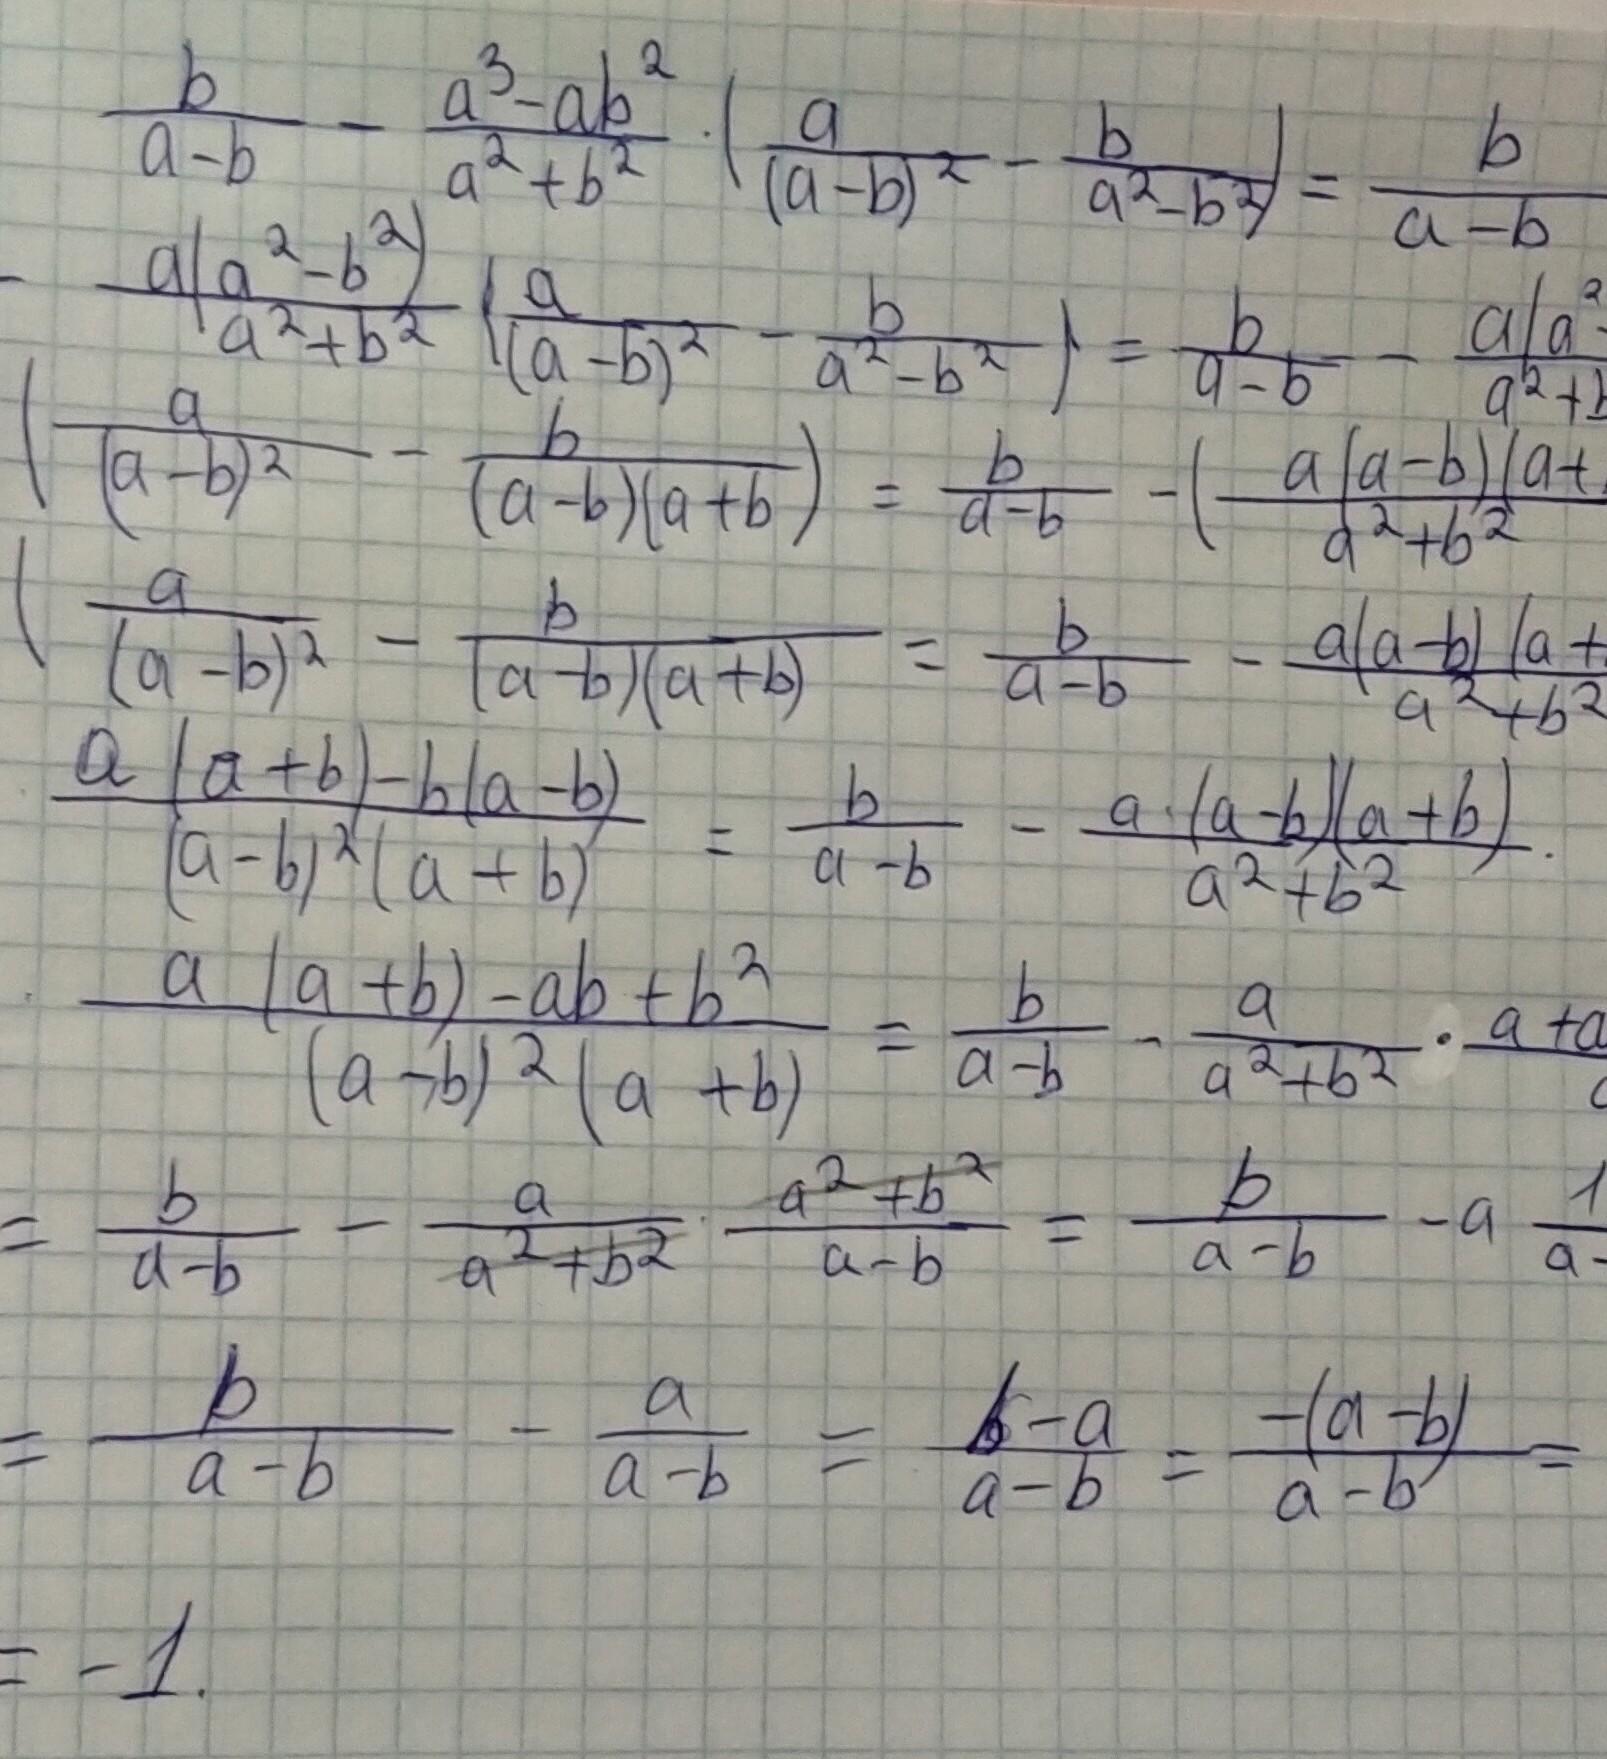 b/(a-b) - (a³-ab²)/(a²+b²) · (a/(a-b)² - b/(a²-b²)) = b/(a-b)
- a(a²-b²)/(a²+b²) (a/(a-b)² - b/(a²-b²)) = b/(a-b) - a(a²-/(a²+b
(a/(a-b)² - b/((a-b)(a+b))) = b/(a-b) - (a(a-b)(a+/(a²+b²)
(a/(a-b)² - b/((a-b)(a+b)) = b/(a-b) - a(a-b)(a+/(a²+b²)
(a(a+b)-b(a-b))/((a-b)²(a+b)) = b/(a-b) - (a·(a-b)(a+b))/(a²+b²) ·
· (a(a+b)-ab+b²)/((a-b)²(a+b)) = b/(a-b) - a/(a²+b²) · a+a
= b/(a-b) - a/(a²+b²) · (a²+b²)/(a-b) = b/(a-b) - a 1/(a-
= b/(a-b) - a/(a-b) = (b-a)/(a-b) = -(a-b)/(a-b) =
= -1.